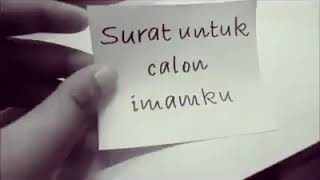 Surat untuk
calon
imamku